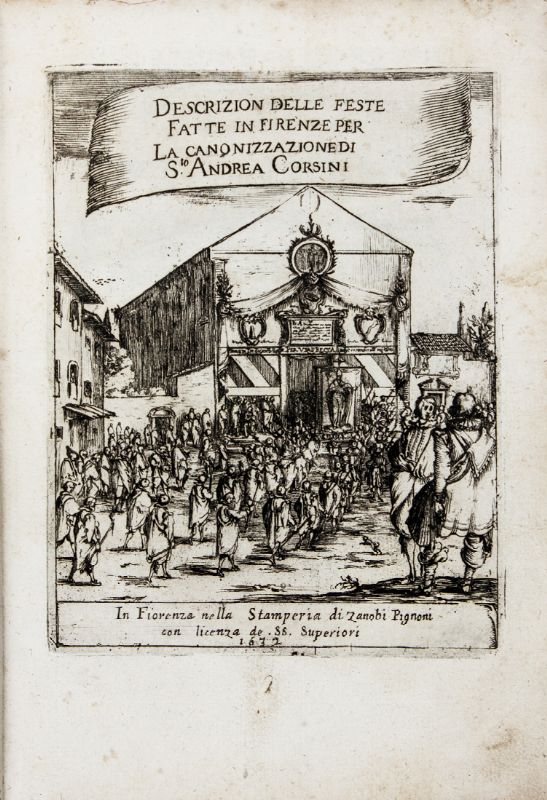 DESCRIZION DELLE FESTE
FATTE IN FIRENZE PER
LA CANONIZZAZIONE DI
S.to ANDREA CORSINI
In Fiorenza nella Stamperia di Zanobi Pignoni
con licenza de. SS. Superiori
1632